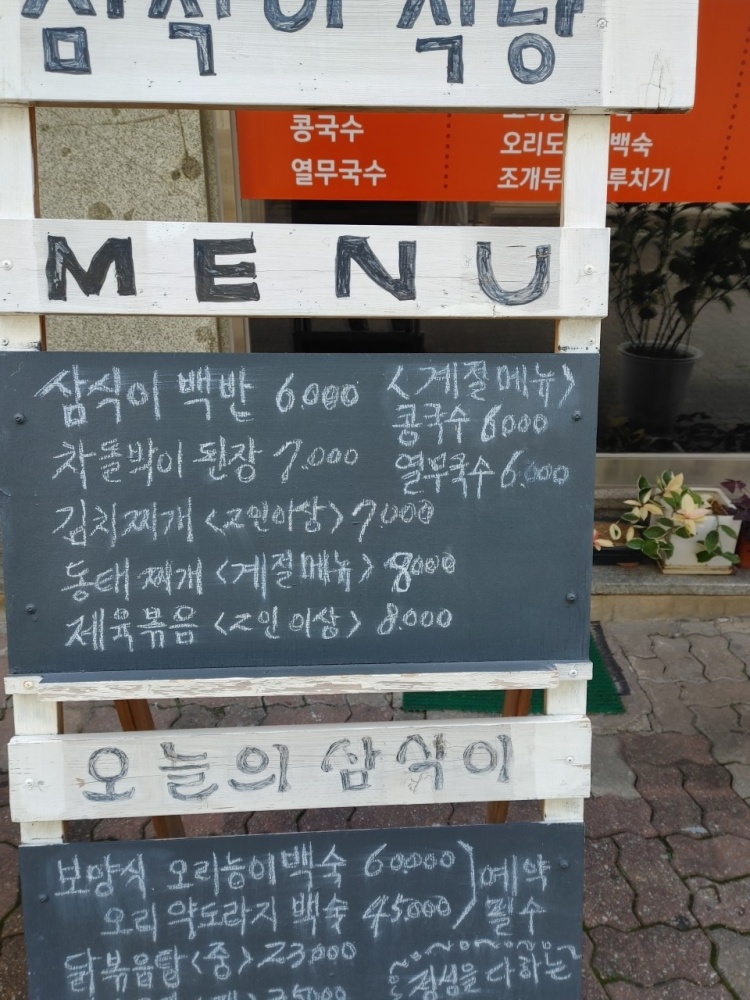 삼식이 식당
콩국수
열무국수
백숙
조개두 루치기
MENU
삼식이 백반 6.000
차돌박이 된장 7.000
김치찌개 <2인이상> 7.000
동태찌개 <계절메뉴> 8000
제육볶음 <2인이상> 8.000
<계절메뉴>
콩국수 6000
열무국수 6.000
오늘의 삼식이
보양식 오리능이백숙 60.000
오리 약도라지 백숙 45.000
예약
필수
닭볶음탕<중> 23.000
정성을 다하는